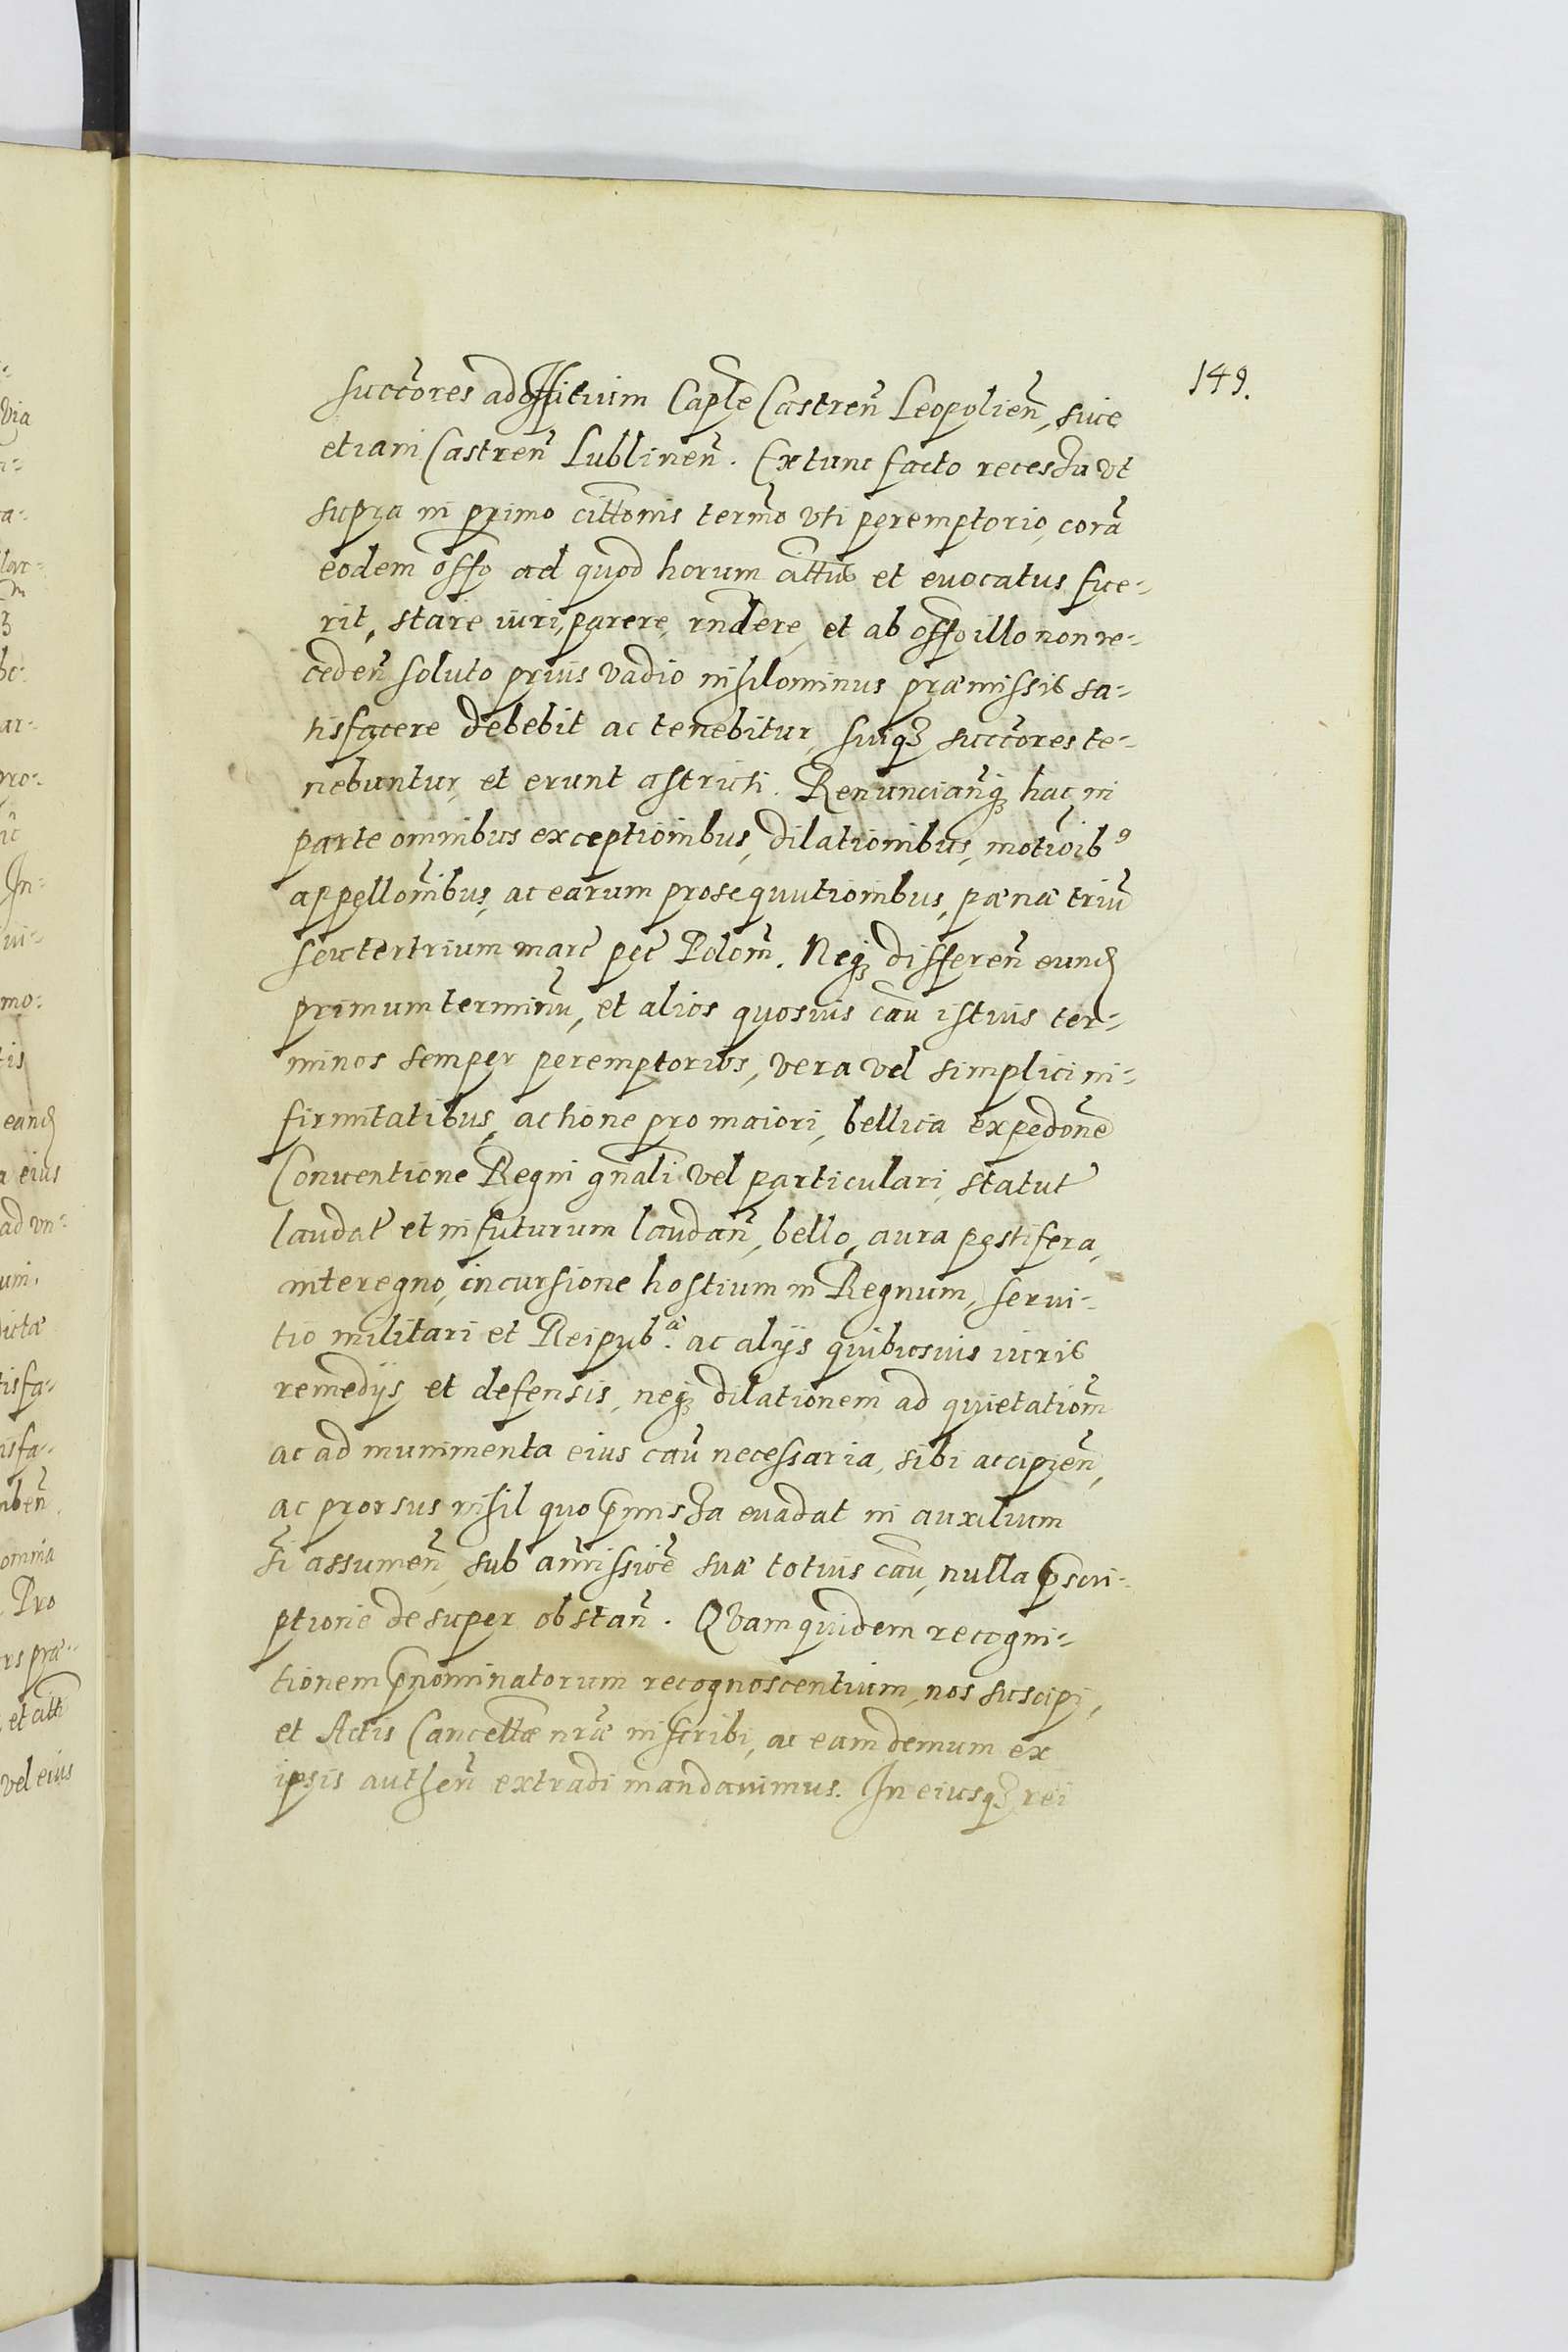 149.
succores ad Officium Caplē Castreñ Leopolieñ, siue
etiam Castreñ Lublineñ. Extunc facto recessu vt
supra in primo cittōnis termō vti peremptorio, corā
eodem offō ad quod horum cittus et euocatus fue-
rit, stare iuri, parere, rñdere, et ab offō illo non re-
cedeñ soluto prius vadio nihilominus præmissis sa-
tisfacere debebit ac tenebitur, suiq₃ succōres te-
nebuntur, et erunt astricti. Renuncianq₃ hac in
parte omnibus exceptionibus, dilationibus, motioib⁹
appellōnibus, ac earum prosequutionibus, pænæ triū
seu ter trium marc̄ pec̄ Poloñ. Neq₃ differeñ eund
primum terminū, et alios quosuis caū istius ter-
minos semper peremptorios, vera vel simplici in-
firmitatibus, actione pro maiori, bellica expedōne
Conuentione Regni gñali vel particulari, statut
laudat et in futurum laudañ, bello, aura pestifera,
interegno, incursione hostium in Regnum, serui-
tio militari et Reipub.ᵃ ac alijs quibusuis iuris
remedijs et defensis, neq₃ dilationem ad quietatiōm
ac ad munimenta eius caū necessaria, sibi accipieñ,
ac prorsus nihil quo p̄missa euadat in auxilium
si assumeñ, sub amissiōe suæ totius caū, nulla p̄scri-
ptione desuper obstañ. Quam quidem recogni-
tionem p̄nominatorum recognoscentium, nos suscipi,
et Actis Cancellæ nr̄æ inscribi, ac eam demum ex
ipsis autheñ extradi mandauimus. In eiusq₃ rei